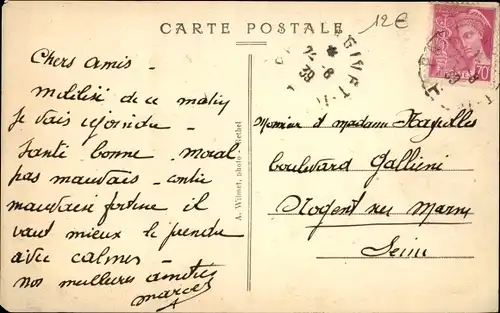 CARTE POSTALE
12€
Chers amis -
mobilisé de ce matin
je vais rejoindre -
Santé bonne moral
pas mauvais - contre
mauvaise fortune il
vaut mieux le prendre
avec calme -
nos meilleures amitiés
Marcel
A. Wilmet, photo - Rethel
GIVET
39
70
Monsieur et madame
boulevard Gallieni
Nogent sur Marne
Seine